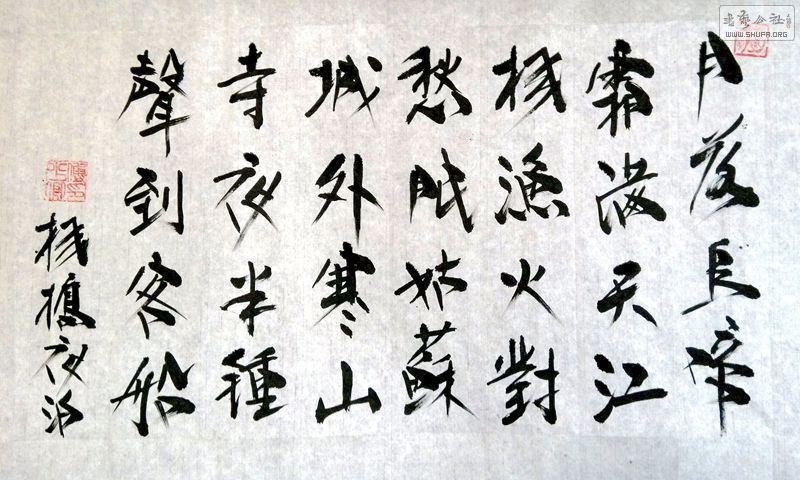 月落乌啼
霜满天江
枫漁火對
愁眠姑蘇
城外寒山
寺夜半鍾
聲到客船
枫橋夜泊
書藝公社
WWW.SHUFA.ORG